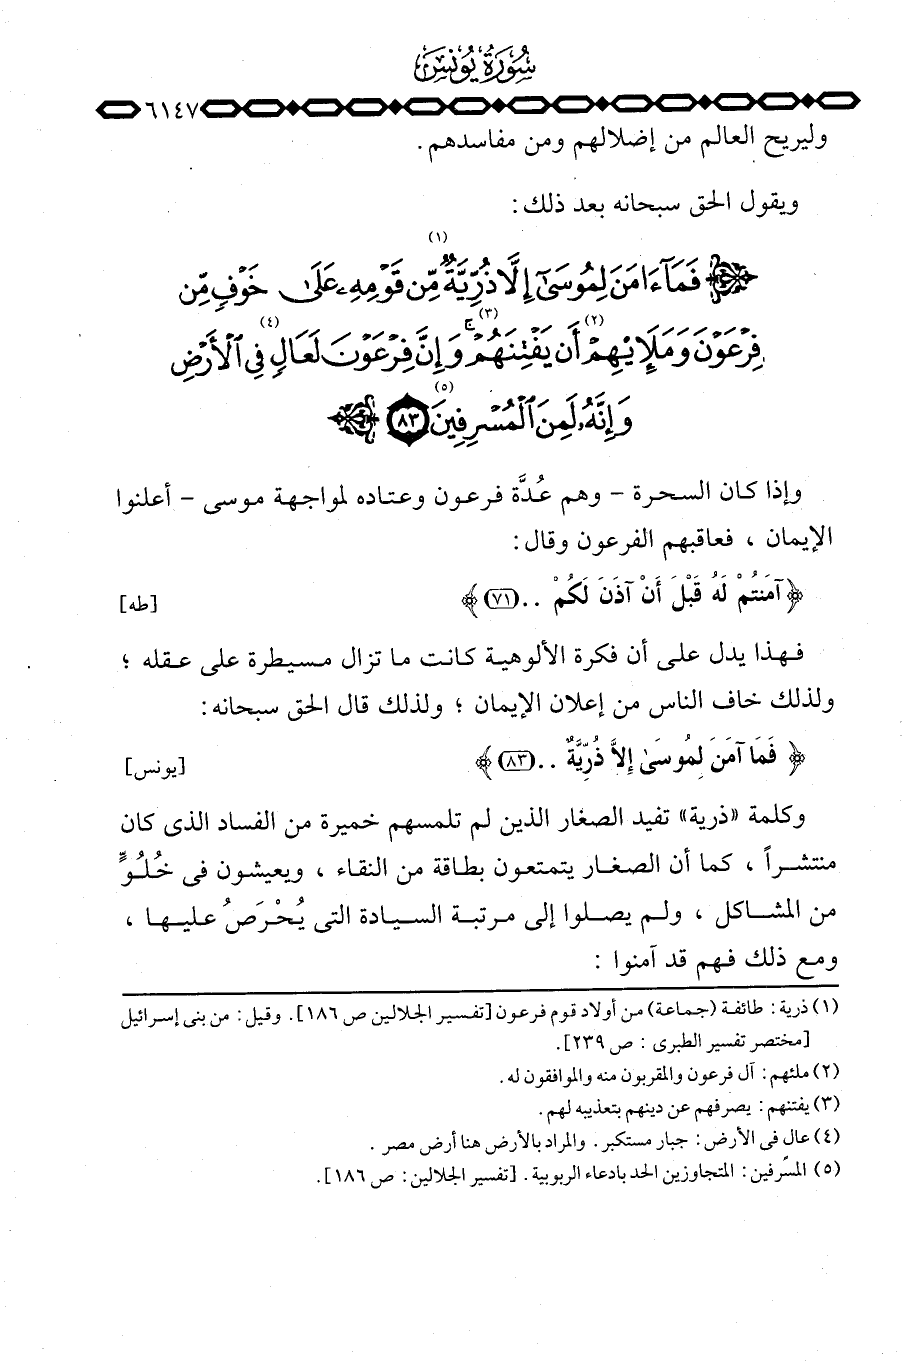 سُورَةُ يُونُسَ
٦١٤٧
وليريح العالم من إضلالهم ومن مفاسدهم .
ويقول الحق سبحانه بعد ذلك :
(١)
فَمَآ ءَامَنَ لِمُوسَىٰٓ إِلَّا ذُرِّيَّةٌ مِّن قَوْمِهِۦ عَلَىٰ خَوْفٍ مِّن
(٢) (٣) (٤)
فِرْعَوْنَ وَمَلَإِيْهِمْ أَن يَفْتِنَهُمْ ۚ وَإِنَّ فِرْعَوْنَ لَعَالٍ فِى ٱلْأَرْضِ
(٥)
وَإِنَّهُۥ لَمِنَ ٱلْمُسْرِفِينَ ٨٣
وإذا كان السحرة – وهم عُدَّة فرعون وعتاده لمواجهة موسى – أعلنوا
الإيمان ، فعاقبهم الفرعون وقال :
﴿ آمَنتُمْ لَهُ قَبْلَ أَنْ آذَنَ لَكُمْ .. (٧١) ﴾ [طه]
فهذا يدل على أن فكرة الألوهية كانت ما تزال مسيطرة على عقله ؛
ولذلك خاف الناس من إعلان الإيمان ؛ ولذلك قال الحق سبحانه :
﴿ فَمَا آمَنَ لِمُوسَىٰ إِلاَّ ذُرِّيَّةٌ .. (٨٣) ﴾ [يونس]
وكلمة «ذرية» تفيد الصغار الذين لم تلمسهم خميرة من الفساد الذى كان
منتشراً ، كما أن الصغار يتمتعون بطاقة من النقاء ، ويعيشون فى خُلُوٍّ
من المشاكل ، ولم يصلوا إلى مرتبة السيادة التى يُحْرَصُ عليها ،
ومع ذلك فهم قد آمنوا :
(١) ذرية : طائفة (جماعة) من أولاد قوم فرعون [تفسير الجلالين ص ١٨٦] . وقيل : من بنى إسرائيل
[مختصر تفسير الطبرى : ص ٢٣٩] .
(٢) ملئهم : آل فرعون والمقربون منه والموافقون له .
(٣) يفتنهم : يصرفهم عن دينهم بتعذيبه لهم .
(٤) عال فى الأرض : جبار مستكبر . والمراد بالأرض هنا أرض مصر .
(٥) المسْرفين : المتجاوزين الحد بادعاء الربوبية . [تفسير الجلالين : ص ١٨٦] .